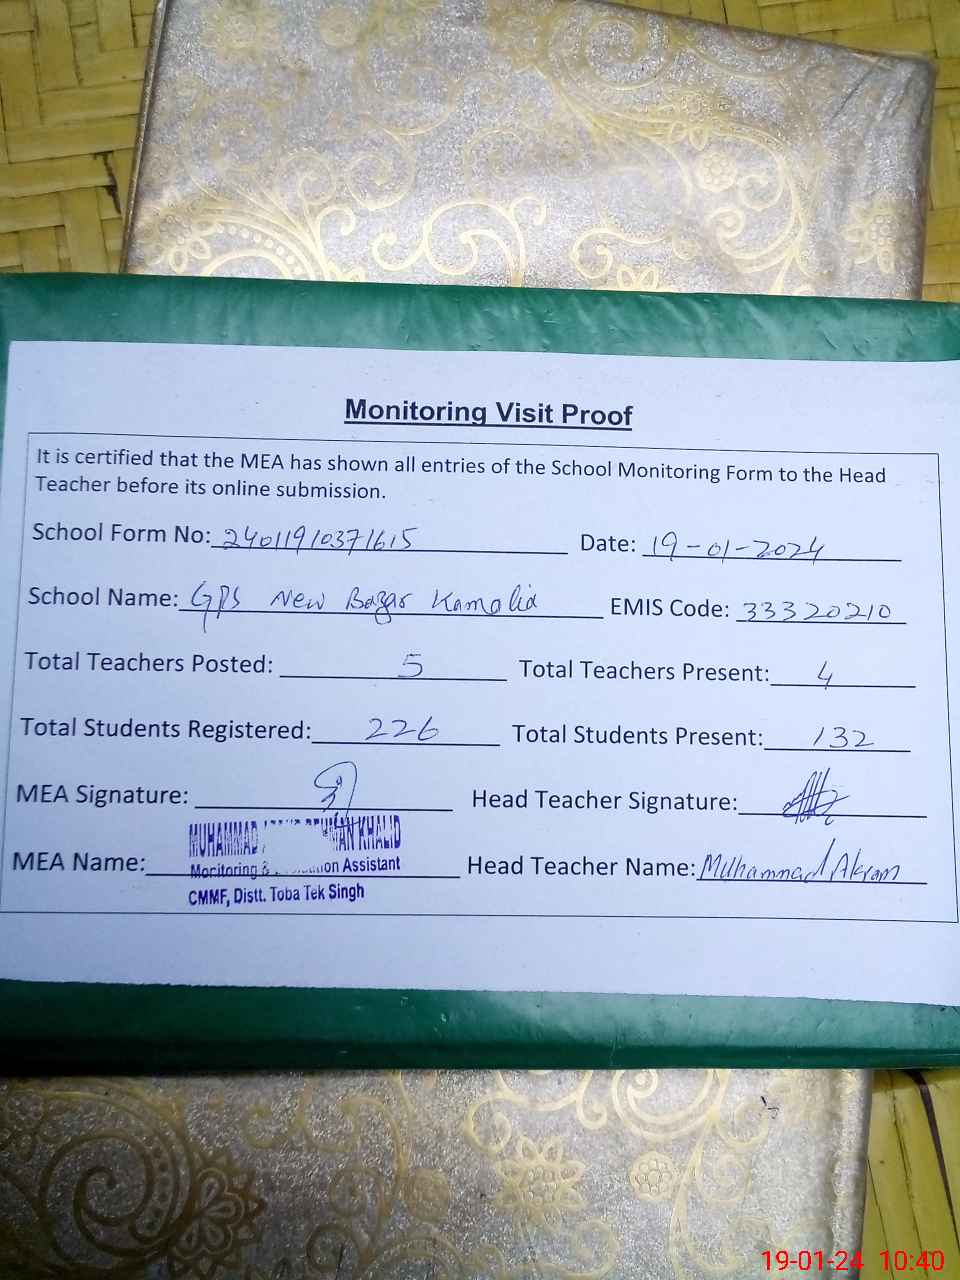 Monitoring Visit Proof
It is certified that the MEA has shown all entries of the School Monitoring Form to the Head
Teacher before its online submission.
School Form No: 24011910371615 Date: 19-01-2024
School Name: GPS New Bazar Kamalia EMIS Code: 33320210
Total Teachers Posted: 5 Total Teachers Present: 4
Total Students Registered: 226 Total Students Present: 132
MEA Signature: Head Teacher Signature:
MUHAMMAD KHALID
MEA Name: Head Teacher Name: Muhammad Akram
Monitoring & Assistant
CMMF, Distt. Toba Tek Singh
19-01-24 10:40